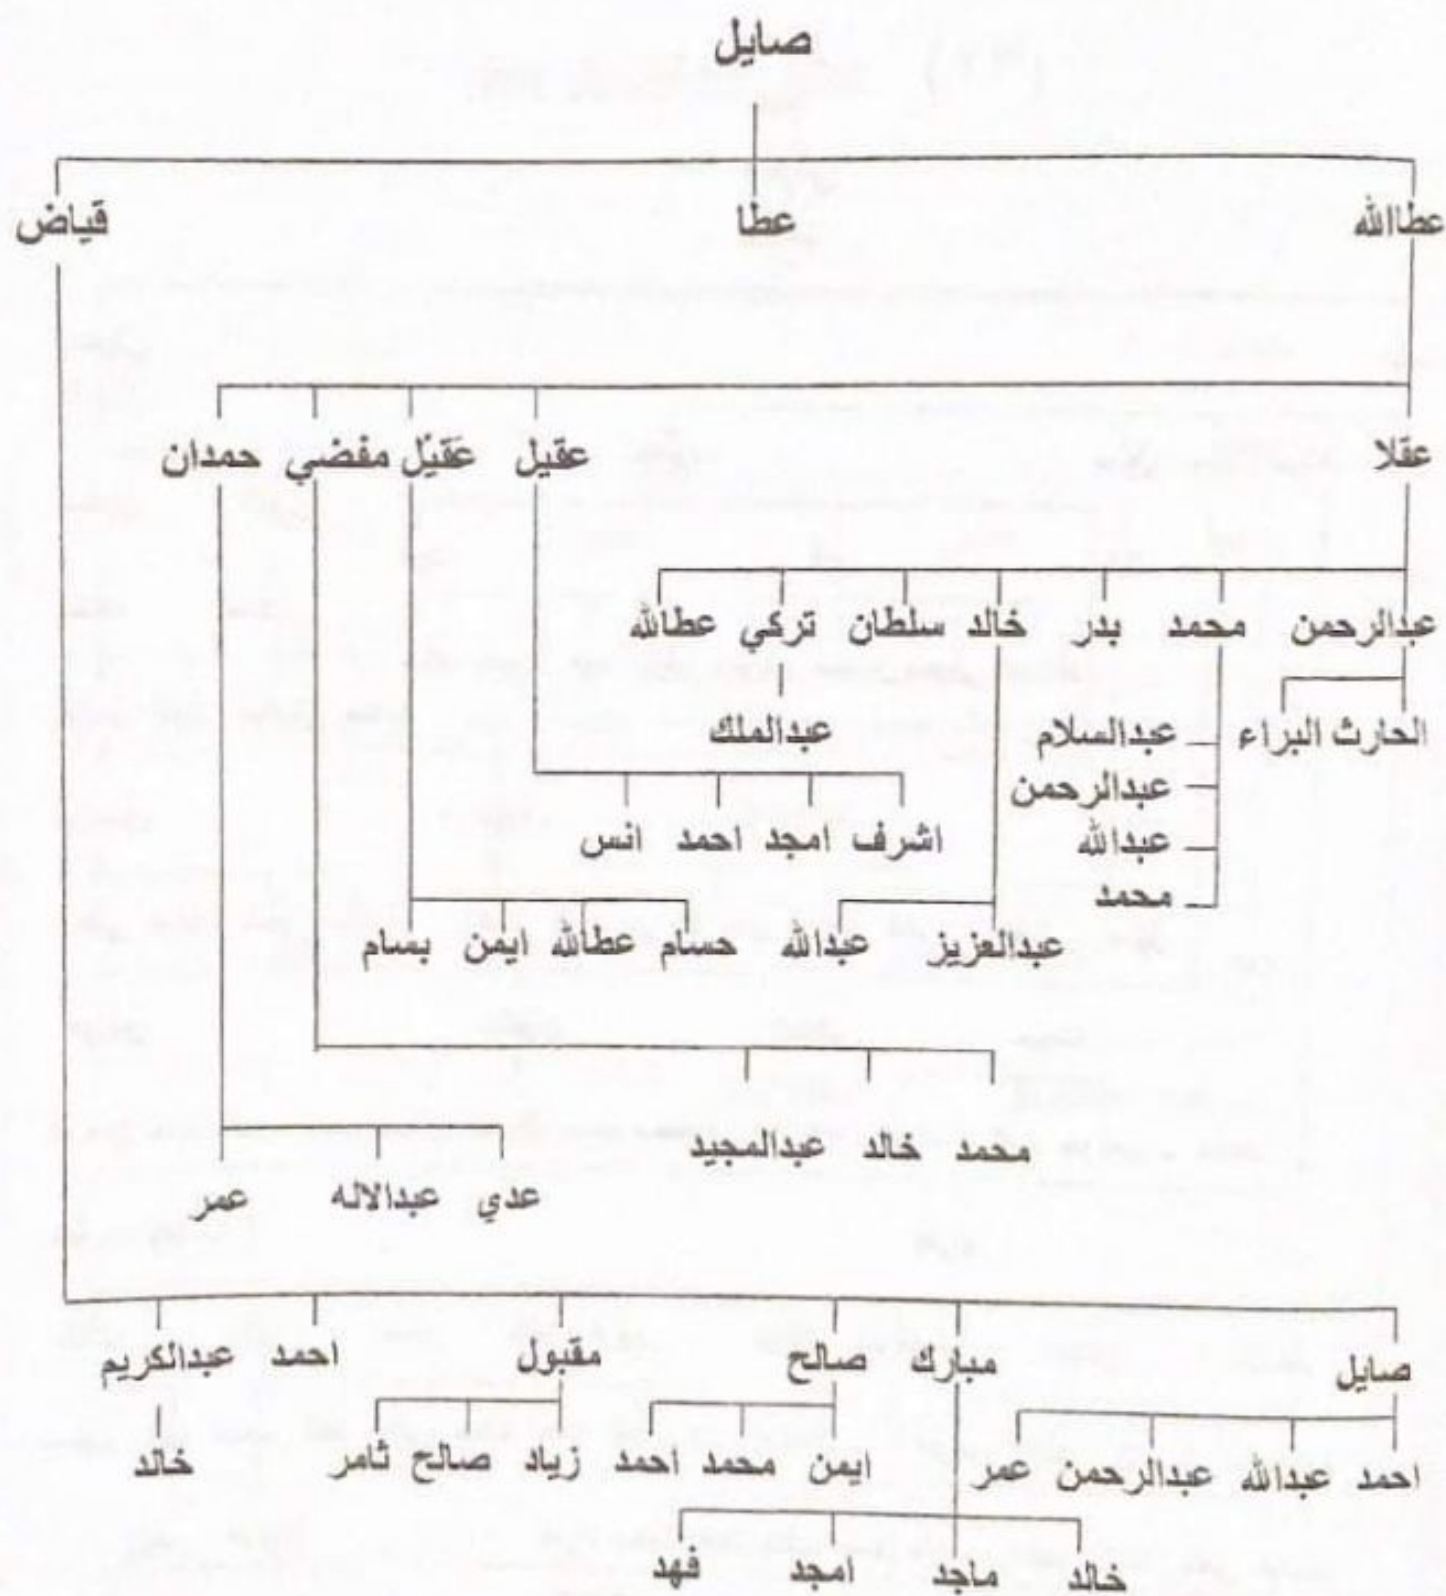 صايل
عطاالله عطا قياض
عقلا عقيل عَقيّل مفضي حمدان
عبدالرحمن محمد بدر خالد سلطان تركي عطالله
الحارث البراء عبدالسلام عبدالملك
عبدالرحمن
عبدالله اشرف امجد احمد انس
محمد
عبدالعزيز عبدالله حسام عطالله ايمن بسام
محمد خالد عبدالمجيد
عدي عبدالاله عمر
صايل مبارك صالح مقبول احمد عبدالكريم
احمد عبدالله عبدالرحمن عمر ايمن محمد احمد زياد صالح ثامر خالد
خالد ماجد امجد فهد